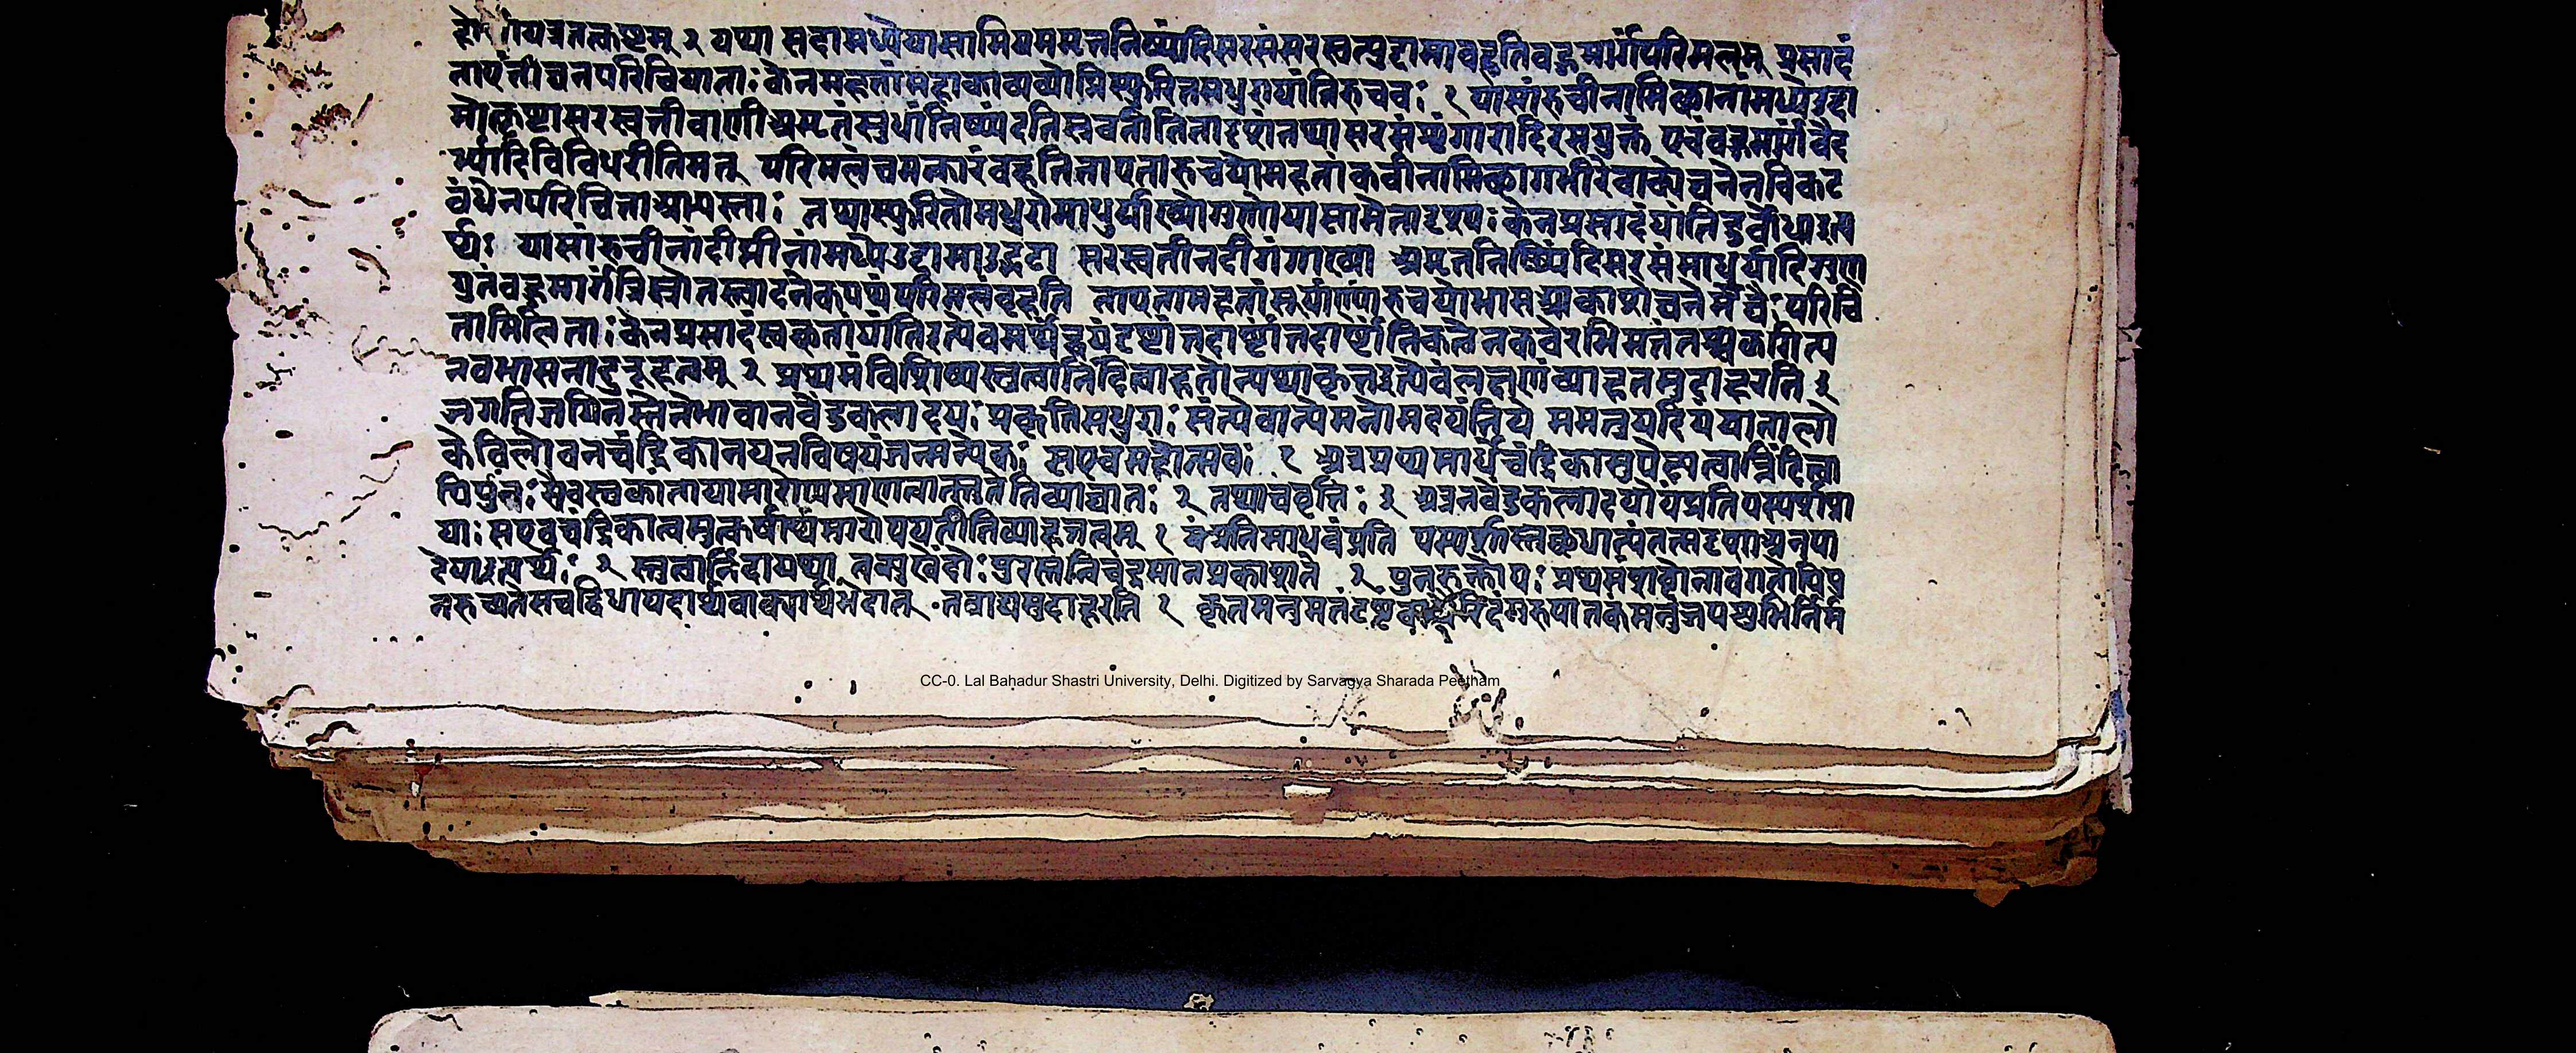 यत्रतत्कष्टम् २ यथा सदामध्येयासामियममृतनिष्यंदिसरसंसरस्वत्युद्दामावहतिबहुमार्गापरिमलम् प्रसादं
ताएताघनपरिचियाताः केनमहतांमहाकाव्यव्योम्निस्फुरितमधुरायांतिरुचयः १ यासांरुचीनामिछानांमध्येउद्दा
मोत्कृष्टासरस्वतीवाणीअमृतंसुधांनिष्यंदतिस्रवतीतितादृशंतथासरसंशृंगारादिरसयुक्तं एवंबहुमार्गावैद
र्भ्यादिविविधरीतिमत् परिमलंचमत्कारंवहतिताएतारुचयोमहतांकवीनामिछागभीरेवाक्येघनेनविकट
बंधेनपरिचिताअभ्यस्ताः तथास्फुरितोमधुरोमाधुर्याख्योगुणोयासामेतादृश्यः केनप्रसादंयांतिदुर्बोधाइत्य
र्थः यासांरुचीनांदीप्तीनांमध्येउद्दामाउद्भटा सरस्वतीनदीगंगाख्या अमृतनिष्यंदिसरसंमाधुर्यादिगुण
युतंबहुमार्गात्रिस्रोतस्त्वादनेकपथंपरिमलंवहति ताएतामहतांसूर्याणांरुचयोभासआकाशेघनैर्मेघैः परिचि
तामिलिताः केनप्रसादंस्वछतांयांतिइत्येवमर्थद्वयंदृष्टांत्तदार्ष्टांत्तदार्ष्टांतिकत्वेनकवेरभिमतंतच्चझगित्य
नवभासनाद्दुरूहत्वम् २ प्रथमंविशिष्यस्तुत्वानिंदित्वाहतोन्यथाकृतइत्येवंलक्षणंव्याहतमुदाहरति ३
जगतिजयिनस्तेतेभावानवेंदुकलादयः प्रकृतिमधुराः संत्येवान्येमनोमदयंतिये ममतुयदियंयातालो
केविलोचनचंद्रिकानयनविषयंजन्मन्येकः सएवमहोत्सवः १ अत्रप्रथमार्धेचंद्रिकामुपेक्ष्यत्वान्निंदित्वा
पिपुनः सैवस्वकांतायामारोप्यमाणत्वात्स्तुतेतिव्याघातः २ तथाचवृत्तिः ३ अत्रनवेंदुकलादयोयंप्रतिपस्पशप्रा
याः सएवचंद्रिकात्वमुत्कर्षार्थमारोपयतीतिव्याहतत्वम् १ यंप्रतिमाधवंप्रति पस्पशास्तुछधात्यंतत्सदृशाअनुपा
देयाइत्यर्थः २ स्तुत्वानिंदायथा तन्मुखेंदोः पुरस्तेनिचंद्रमानप्रकाशते ३ पुनरुक्तोयः प्रथमंशब्देनावगतोपिपु
नरुच्यतेसचद्विधापदार्थवाक्यार्थभेदात् तत्राद्यमुदाहरति १ कृतमनुमतंदृष्टंवायैरिदंगुरुपातकंमनुजपशुभिर्निर्म
CC-0. Lal Bahadur Shastri University, Delhi. Digitized by Sarvagya Sharada Peetham